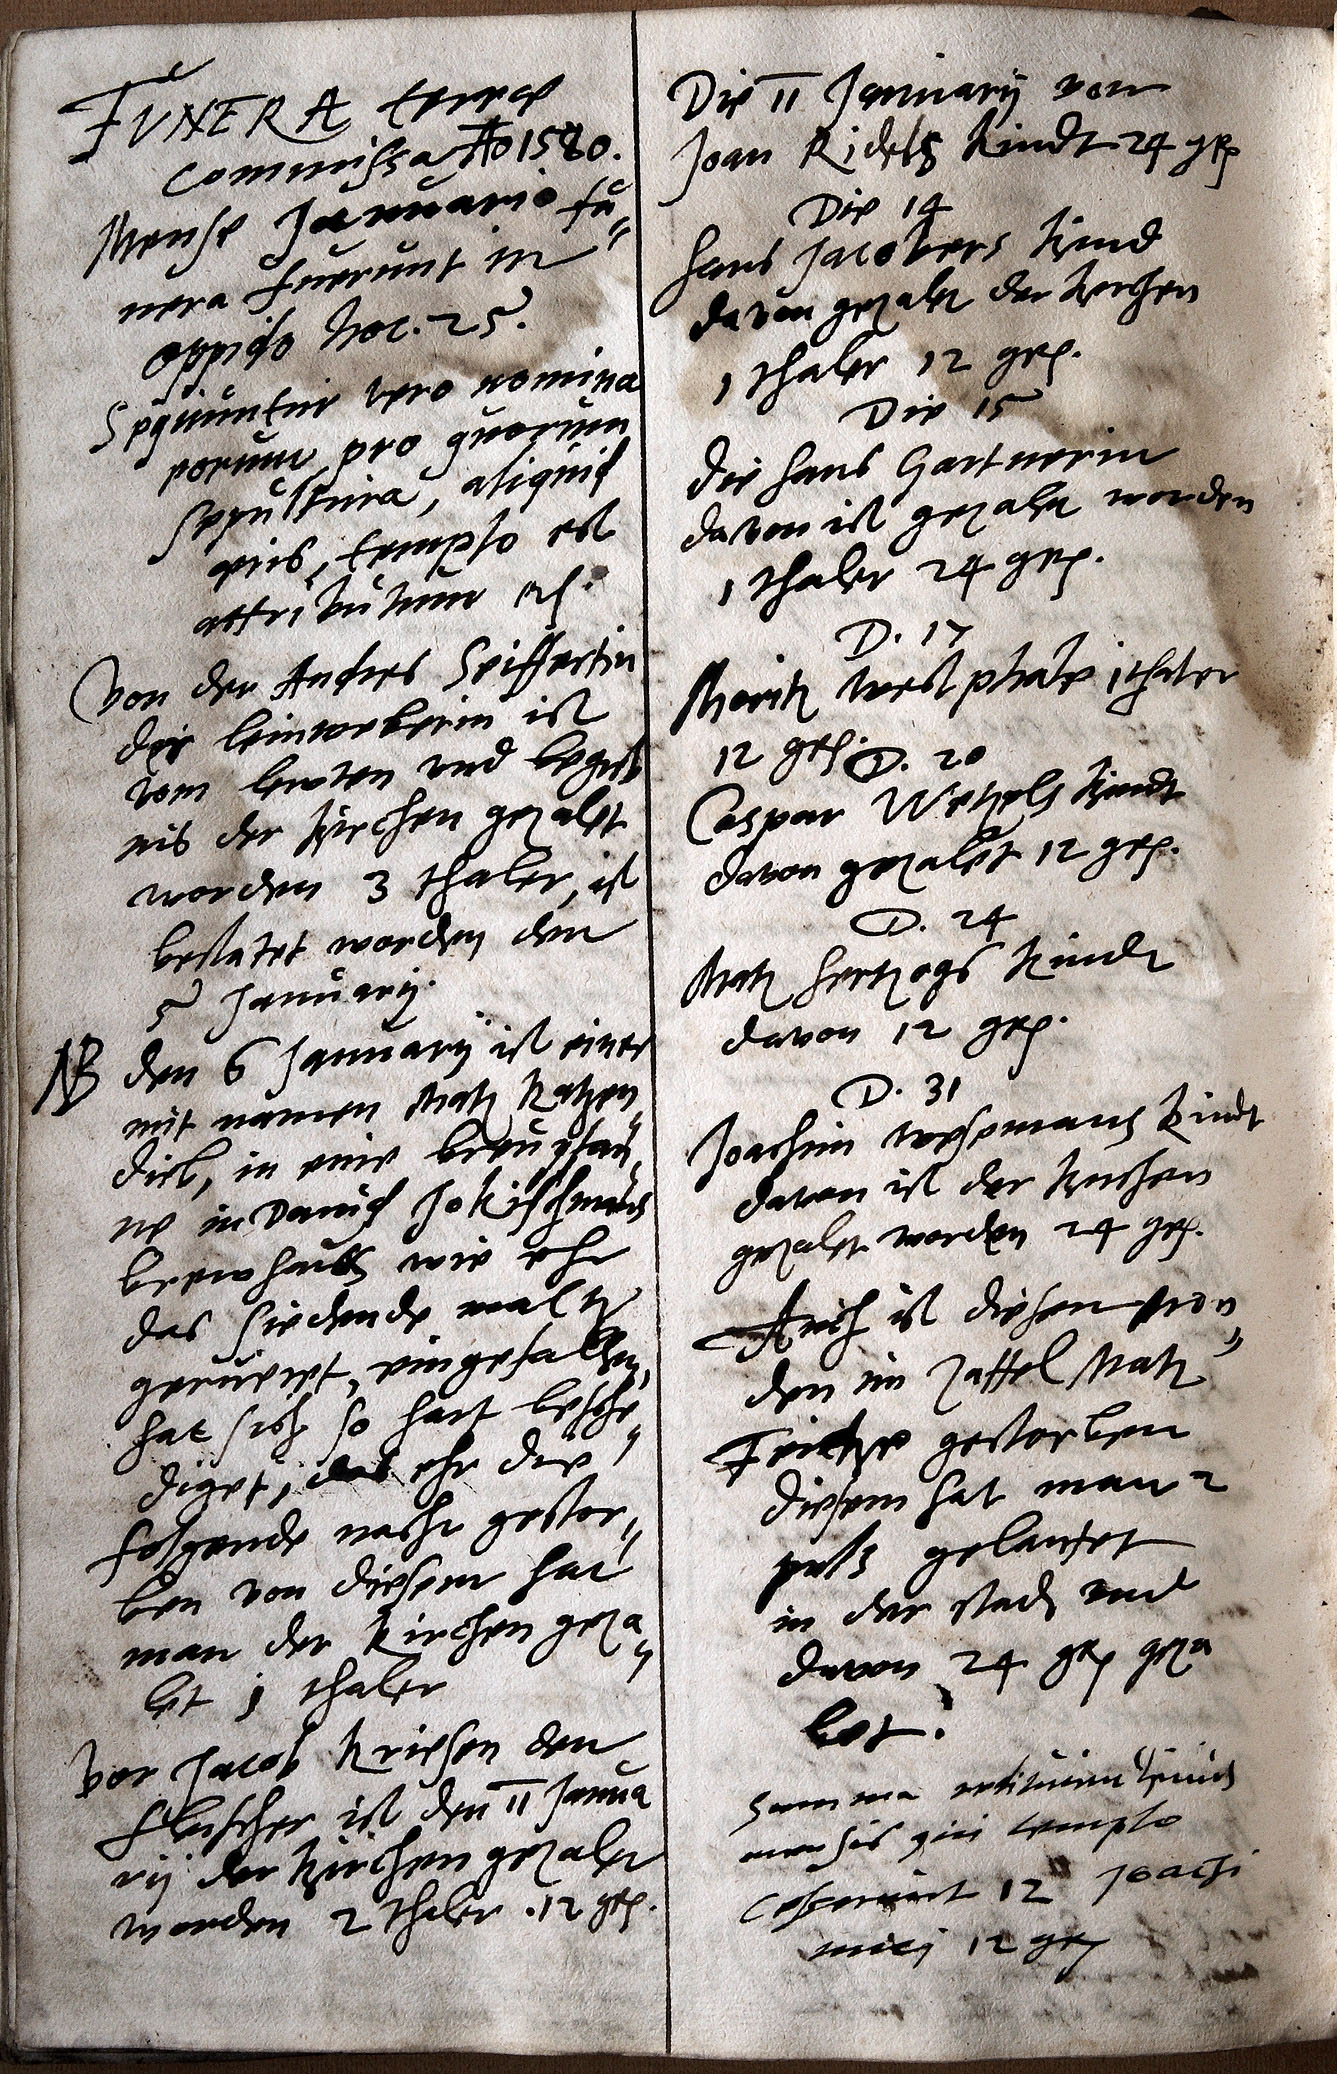 FUNERA terrae
commissa Ao 1580.
Mense Januario fu„
nera fuerunt in
oppido hoc. 25.
Sequuntur vero nomina
eorum, pro quorum
sepultura, aliquid
eius, templo est
attributum
Von der Andres Seiffertin
die leinweberin ist
vom leuten und begreb
nis der kirchen gezalet
worden 3 thaler, ist
bestatet worden den
5 January.
NB den 6 January ist einer
mit namen Matz Katzen„
dieb, in eine breupfan„
ne in Dauid Jokischmans
brewhauss wie ehr
das siedende maltz
geruert, eingefallen,
hat sich so hart besche„
diget, das ehr die
folgende nacht gestor„
ben von diesem hat
man der kirchen geza„
let 1 thaler
Vor Jacob Kriesen den
fleischer ist den 11 Janua
rij der kirchen gezalet
worden 2 thaler. 12 gr.
Die 11 January von
Joan Ridels kindt 24 gr
Die 14
Hans Jacobers kind
davon gezalet der kirchen
1 thaler 12 gr.
Die 15
die Hans Gartnerin
davon ist gezalet worden
1 thaler 24 gr.
D. 17
Moritz Westphale 1 thaler
12 gr. D. 20
Caspar Wetzels kindt
davon gezalet 12 gr.
D. 24
Matz Hertzogs kindt
davon 12 gr.
D. 31
Joachim Wesemans kindt
davon ist der kirchen
gezalet worden 24 gr.
Auch ist diesen Mon„
den im Zattel Matz
Fritze gestorben
diesem hat man 2
puls gelautet
in der stadt und
davon 24 gr geza
let.
Summa
mensis qui templo
cesserunt 12 Joachi
mici 12 gr